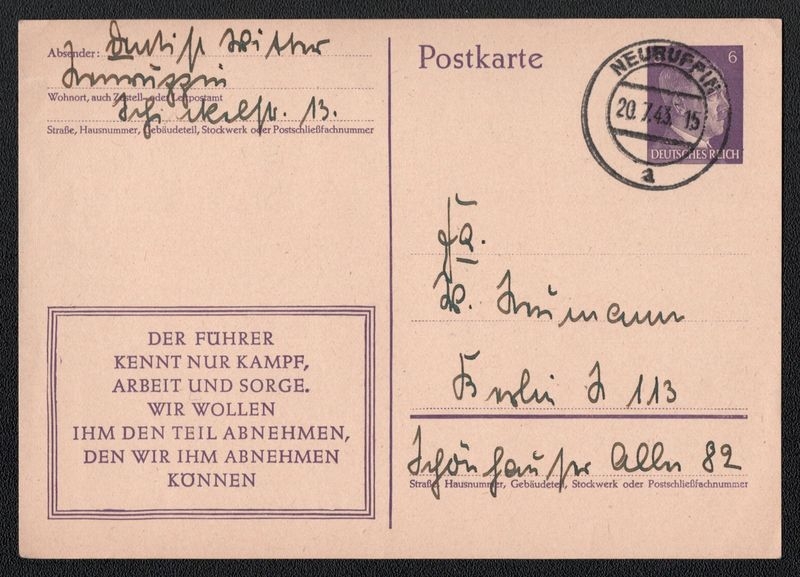 Absender: Dentist Witter
Neuruppin
Wohnort, auch Zustell- oder Leitpostamt
13.
Straße, Hausnummer, Gebäudeteil, Stockwerk oder Postschließfachnummer
Postkarte
NEURUPPIN
20.7.43. 15
a
6
DEUTSCHES REICH
Fa.
W. Neumann
Berlin N 113
Schönhauser Allee 82
Straße, Hausnummer, Gebäudeteil, Stockwerk oder Postschließfachnummer
DER FÜHRER
KENNT NUR KAMPF,
ARBEIT UND SORGE.
WIR WOLLEN
IHM DEN TEIL ABNEHMEN,
DEN WIR IHM ABNEHMEN
KÖNNEN